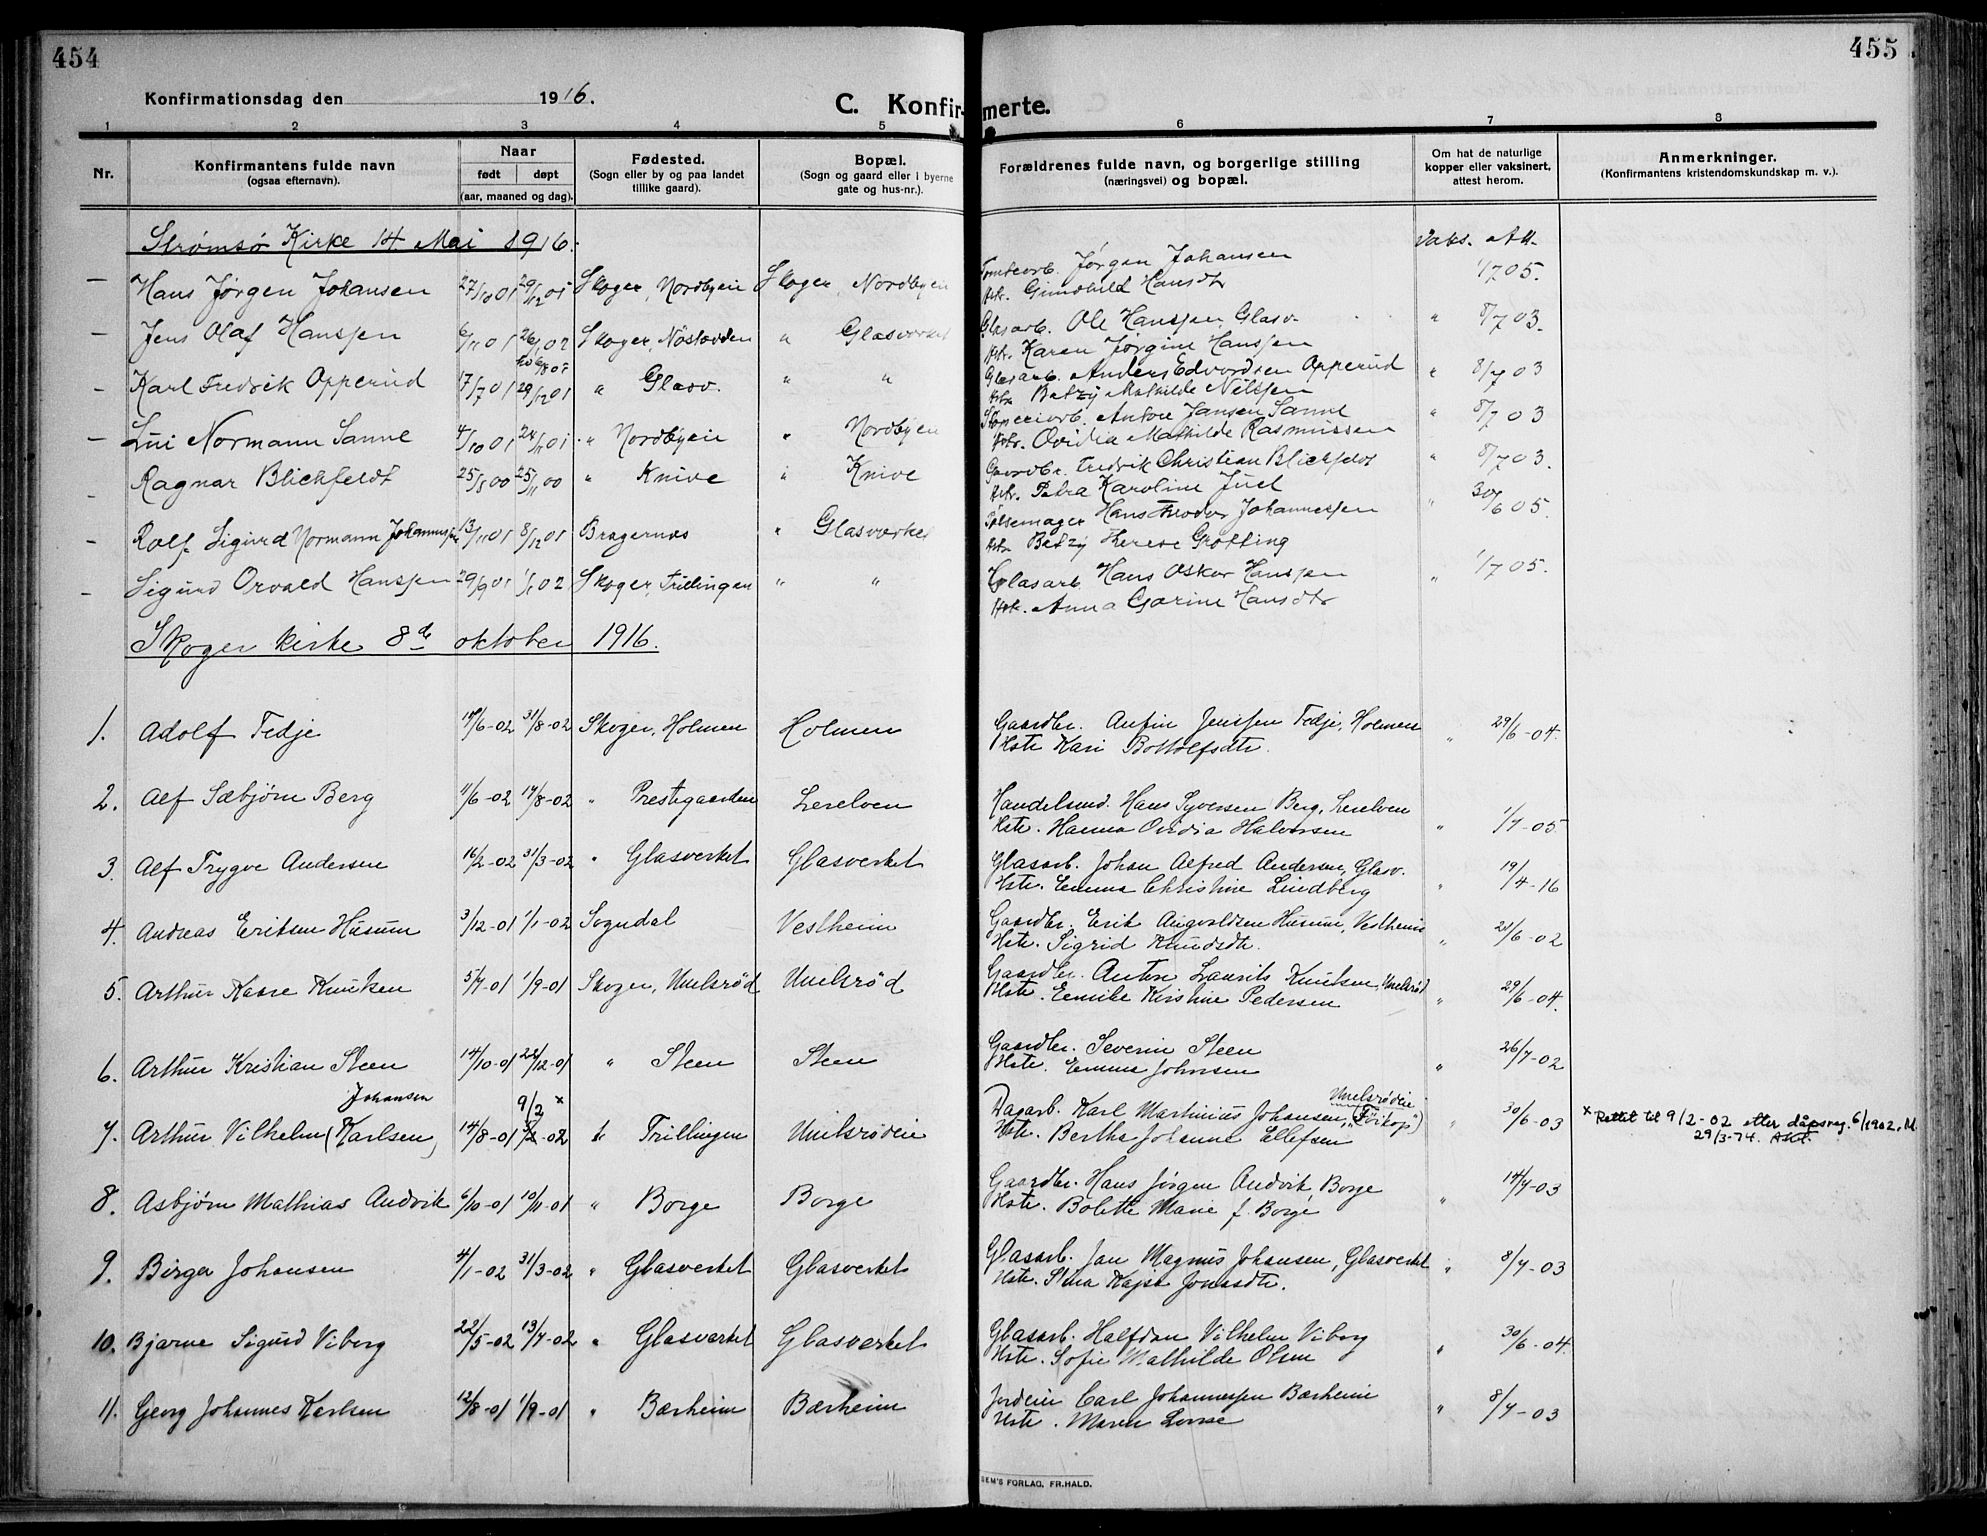 454
455
Konfirmationsdag den 1916.
C. Konfirmerte.
1 2 3 4 5 6 7 8
Nr.
Konfirmantens fulde navn
(ogsaa efternavn).
Naar
født døpt
(aar, maaned og dag).
Fødested.
(Sogn eller by og paa landet
tillike gaard).
Bopæl.
(Sogn og gaard eller i byerne
gate og hus-nr.).
Forældrenes fulde navn, og borgerlige stilling
(næringsvei) og bopæl.
Om hat de naturlige
kopper eller vaksinert,
attest herom.
Anmerkninger.
(Konfirmantens kristendomskundskap m. v.).
Strømsø Kirke 14 Mai 1916. Vaks. Att.
— Hans Jørgen Johansen 27/10 01 29/12 01 Skoger, Nordbyen Skoger, Nordbyen Tomtearb. Jørgen Johansen 1/7 05.
Hstr. Gunnhild Hansdtr
— Jens Olaf Hanssen 6/11 01 26/1 02 Skoger, Nøstodden " Glasverket Glasarb. Ole Hanssen Glasv. " 8/7 03.
Hstr. Karen Jørgine Hanssen
— Karl Fredrik Opperud 17/7 01 29/12 01 " Glasv. " " Glasarb. Anders Edvardsen Opperud " 8/7 03
Hstr. Betzy Mathilde Nilssen
— Lui Normann Sanne 4/10 01 24/11 01 " Nordbyen " Nordbyen Støperiarb. Anton Jansen Sanne " 8/7 03
Hstr. Ovidia Mathilde Rasmussen
— Ragnar Blichfeldt 25/8 00 25/11 00 " Knive " Knive Gaardbr. Fredrik Christian Blichfeldt " 8/7 03.
Hstr. Petra Karoline Juel
— Rolf Sigurd Normann Johannessen 13/11 01 8/12 01 Bragernæs " Glasverket Pølsemager Hans Theodor Johannessen " 30/6 05.
Hstr. Betzy Therese Grøtting
— Sigurd Orvald Hanssen 29/9 01 1/1 02 Skoger, Trillingen " " Glasarb. Hans Oskar Hanssen " 1/7 05.
Hstr. Anna Garine Hansdtr
Skoger kirke 8de oktober 1916.
1. Adolf Tedje 17/6-02 31/8-02 Skoger, Holmen Holmen Gaardbr. Anfin Jenssen Tedje, Holmen " 29/6-04.
Hstr. Kari Bottolfsdtr.
2. Alf Sæbjørn Berg 11/6-02 17/8-02 " Prestegaarden Lerelven Handelsmd. Hans Syversen Berg, Lerelven
Hstr. Hanna Ovidia Halvorsen " 1/7-05
3. Alf Trygve Andersen 16/2-02 31/3-02 " Glasverket Glasverket Glasarb. Johan Alfred Andersen, Glasv.
Hstr. Emma Christine Lindberg " 19/4-16
4. Andreas Eriksen Husum 3/12-01 1/1-02 Sogndal Vestheim Gaardbr. Erik Angvoldsen Husum, Vestheim
Hstr. Sigrid Knudsdtr. " 21/6-02
5. Arthur Kaare Knutsen 5/7-01 1/9-01 Skoger, Unelsrød Unelsrød Gaardbr. Anton Laurits Knutsen, Unelsrød
Hstr. Emilie Kirstine Pedersen " 29/6-04.
6. Arthur Kristian Steen 14/10-01 22/12-01 " Steen Steen Gaardbr. Severin Steen
Hstr. Emma Johnsen " 26/7-02
Johansen 9/2 x Unelsrødeie
7. Arthur Vilhelm (Karlsen) 14/8-01 5/2-02 " Trillingen Unelsrødeie Dagarb. Karl Martinius Johansen, 30/6-03 x Rettet til 9/2-02 etter dåpsreg. 6/1902, M.
Hstr. Berthe Johanne Ellefsen 29/3-74.
8. Asbjørn Mathias Andvik 6/10-01 10/11-01 " Borge Borge Gaardbr. Hans Jørgen Andvik, Borge
Hstr. Bolette Marie f. Borge " 14/7-03
9. Birger Johansen 4/1-02 31/3-02 " Glasverket Glasverket Glasarb. Jan Magnus Johansen, Glasverket " 8/7-03
Hstr. Stina Kajsa Jonasdtr.
10. Bjarne Sigurd Viborg 22/5-02 13/7-02 " Glasverket Glasverket Glasarb. Halfdan Vilhelm Viborg 30/6-04.
Hstr. Sofie Mathilde Olsen "
11. Georg Johannes Karlsen 12/8-01 1/9-01 " Bærheim Bærheim Jordeier Carl Johannessen Bærheim " 8/7-03
Hstr. Maren Lovise
SEM'S FORLAG, FR.HALD.